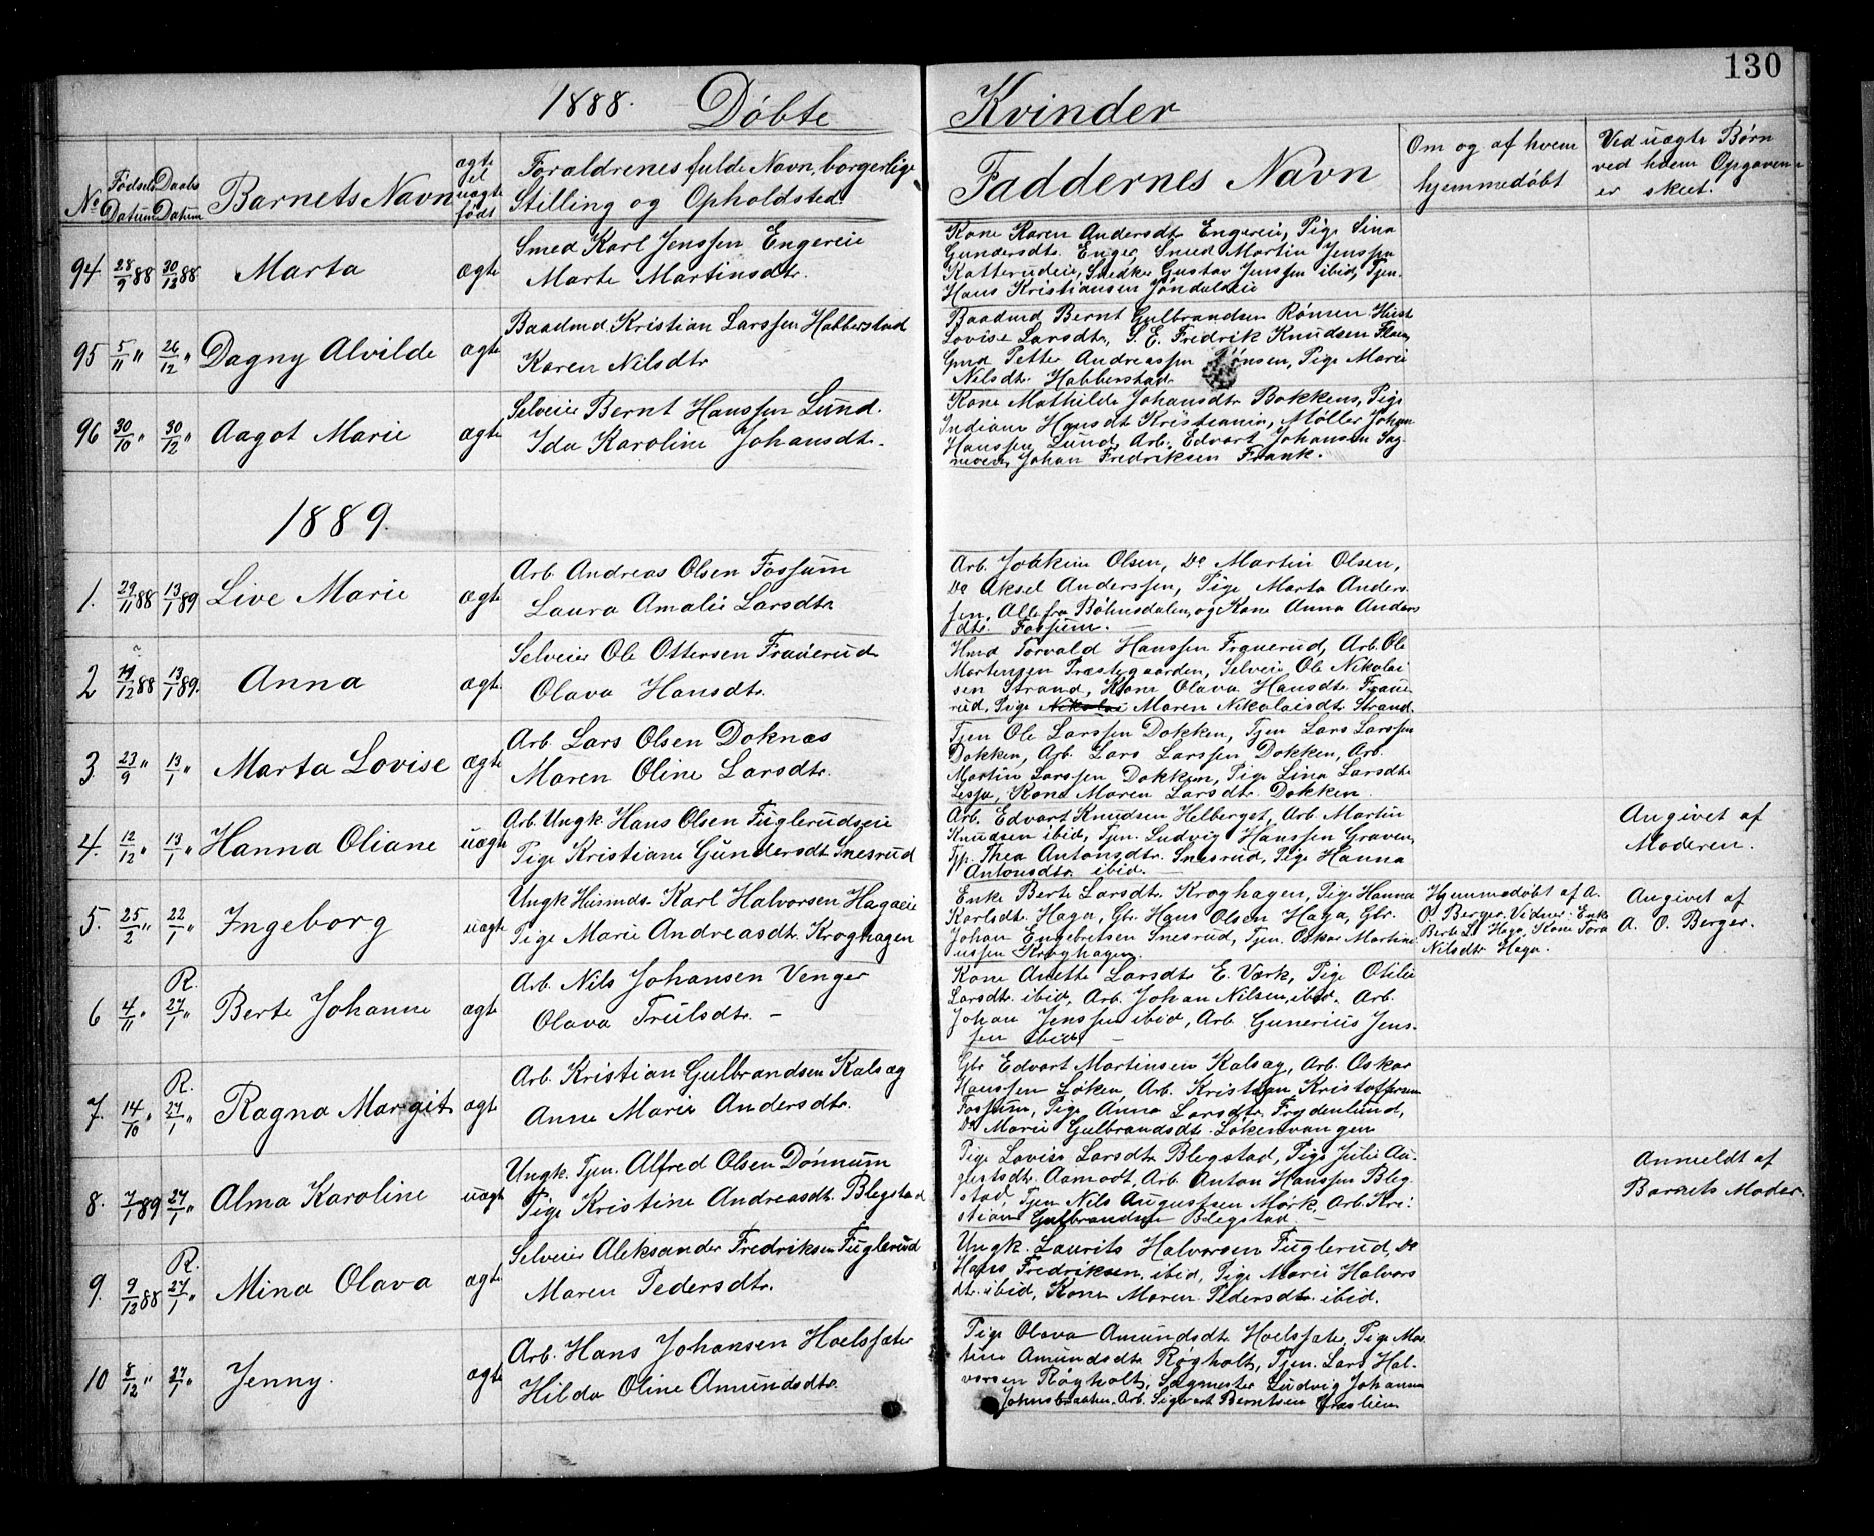 130
1888. Døbte Kvinder
No
Fødsels Datum
Daabs Datum
Barnets Navn
ægte el uægte født
Forældrenes fulde Navn, borgerlige
Stilling og Opholdsted.
Faddernes Navn
Om og af hvem
hjemmedøbt
Ved uægte Børn
ved hvem Opgaven
er skeet.
94 28/9 88 30/12 88 Marta ægte
Smed Karl Jenssen Engereie
Marte Martinsdtr.
Kone Karen Andersdtr Engereie, Pige Lina
Gundersdtr. Enger, Smed Martin Jenssen
Katterudeie, Snedker Gustav Jenssen ibid, Tjen.
Hans Kristiansen Jøndaleie
95 5/11 " 26/12 " Dagny Alvilde ægte
Baadmd Kristian Larssen Habberstad
Karen Nilsdtr
Baadmd Bernt Gulbrandsen Rønsen Hust
Lovise Larsdtr, S. E. Fredrik Knudsen
Gmd Petter Andreassen Rønsen, Pige Marie
Nilsdtr. Habberstad
96 30/10 " 30/12 " Aagot Marie ægte
Selveier Bernt Hanssen Lund.
Ida Karoline Johansdtr.
Kone Mathilde Johansdtr Bakkens, Pige
Indiane Hansdt Kristiania, Møller Johan
Hanssen Lund, Arb. Edvart Johansen
Johan Fredriksen Frank.
1889.
1. 29/11 88 13/1 89 Live Marie ægte
Arb. Andreas Olsen Fossum
Laura Amalie Larsdtr
Arb. Joakim Olsen, Do Martin Olsen,
Do Aksel Anderssen, Pige Marta Anders-
sen, Alle fra Bøhnsdalen, og Kone Anna Anders
dtr. Fossum. —
2 11/12 88 13/1 89. Anna ægte
Selveier Ole Ottersen Frauerud
Olava Hansdtr.
Hmd Torvald Hanssen Frauerud, Arb. Ole
Martensen Præstegaarden, Selveier Ole Nikolai
sen Strand, Kone Olava Hansdtr. Fraue
rud, Pige Nikolai Maren Nikolaisdtr Strand.
3 23/9 " 13/1 " Marta Lovise ægte
Arb. Lars Olsen Doknæs
Maren Oline Larsdtr.
Tjen Ole Larssen Dokken, Tjen Lars Larssen
Dokken, Arb. Lars Larssen Dokken, Arb.
Martin Larssen Dokken, Pige Lina Larsdtr
Lesja, Kone Maren Larsdtr. Dokken.
4. 12/12 " 13/1 " Hanna Oliane uægte
Arb. Ungk. Hans Olsen Fuglerudseie
Pige Kristiane Gundersdt. Snesrud
Arb. Edvart Knudsen Helberget, Arb. Martin
Knudsen ibid, Tjen. Ludvig Hanssen Graven,
Thea Antonsdtr. Snesrud, Pige Hanna
Antonsdtr. ibid. —
Angivet af
Moderen.
5. 25/2 " 22/1 " Ingeborg uægte
Ungk Husmdss. Karl Halvorsen Hagaeie
Pige Marie Andreasdt. Kroghagen
Enke Berte Larsdtr. Kroghagen, Pige Hanna
Karlsdtr. Haga, Gbr. Hans Olsen Haga, Gbr.
Johan Engebretsen Snesrud, Tjen. Oskar Martini
ussen Kroghagen.
Hjemmedøbt af A.
O. Berger. Vidner: Enke
Berte L. Haga, Kone Tora
Nilsdtr Haga.
Angivet af
A. O. Berger.
6 4/11 " R. 27/1 " Berte Johanne ægte
Arb. Nils Johansen Venger
Olava Trulsdtr. —
Kone Anette Larsdtr E. Værk, Pige Otilie
Larsdtr. ibid, Arb. Johan Nilsen, ibid. Arb.
Johan Jenssen ibid, Arb Gunerius Jens-
sen ibid. —
7. 14/10 " R. 27/1 " Ragna Margit ægte
Arb. Kristian Gulbrandsen Kalsæg
Anne Marie Andersdtr.
Gbr Edvart Martinsen Kalsæg, Arb. Oskar
Hanssen Løken, Arb. Kristian Kristoffersen
Fossum, Pige Anna Larsdtr. Frydenlund,
Do Marie Gulbrandsdtr. Løkenvangen
8. 7/1 89 27/1 " Alma Karoline uægte
Ungk. Tjen. Alfred Olsen Dønnum
Pige Kristine Andreasdt. Blegstad
Pige Lovise Larsdtr. Blegstad, Pige Julie Au-
gustsdtr. Aamodt, Arb. Anton Hanssen Bleg-
stad, Tjen Nils Augustsen Mørk, Arb. Kri-
stian Gulbrandsen Blegstad —
Anmeldt af
Barnets Moder.
9. 9/12 88 R. 27/1 " Mina Olava ægte
Selveier Aleksander Fredriksen Fuglerud
Maren Pedersdtr.
Ungk. Laurits Halvorsen Fuglerud, Do
Hans Fredriksen, ibid, Pige Marie Halvors
dtr. ibid, Kone Maren Pedersdtr. ibid.
10 8/12 " 27/1 " Jenny. ægte
Arb. Hans Johansen Hoelssæter
Hilda Oline Amundsdtr.
Pige Olava Amundsdtr Hoelssæter, Pige Mar
tine Amundsdtr Røgholt, Tjen. Lars Hal-
vorsen Røgholt, Sagmester Ludvig Johansen
Johnsbraaten. Arb. Sigvart Berntsen Graslien